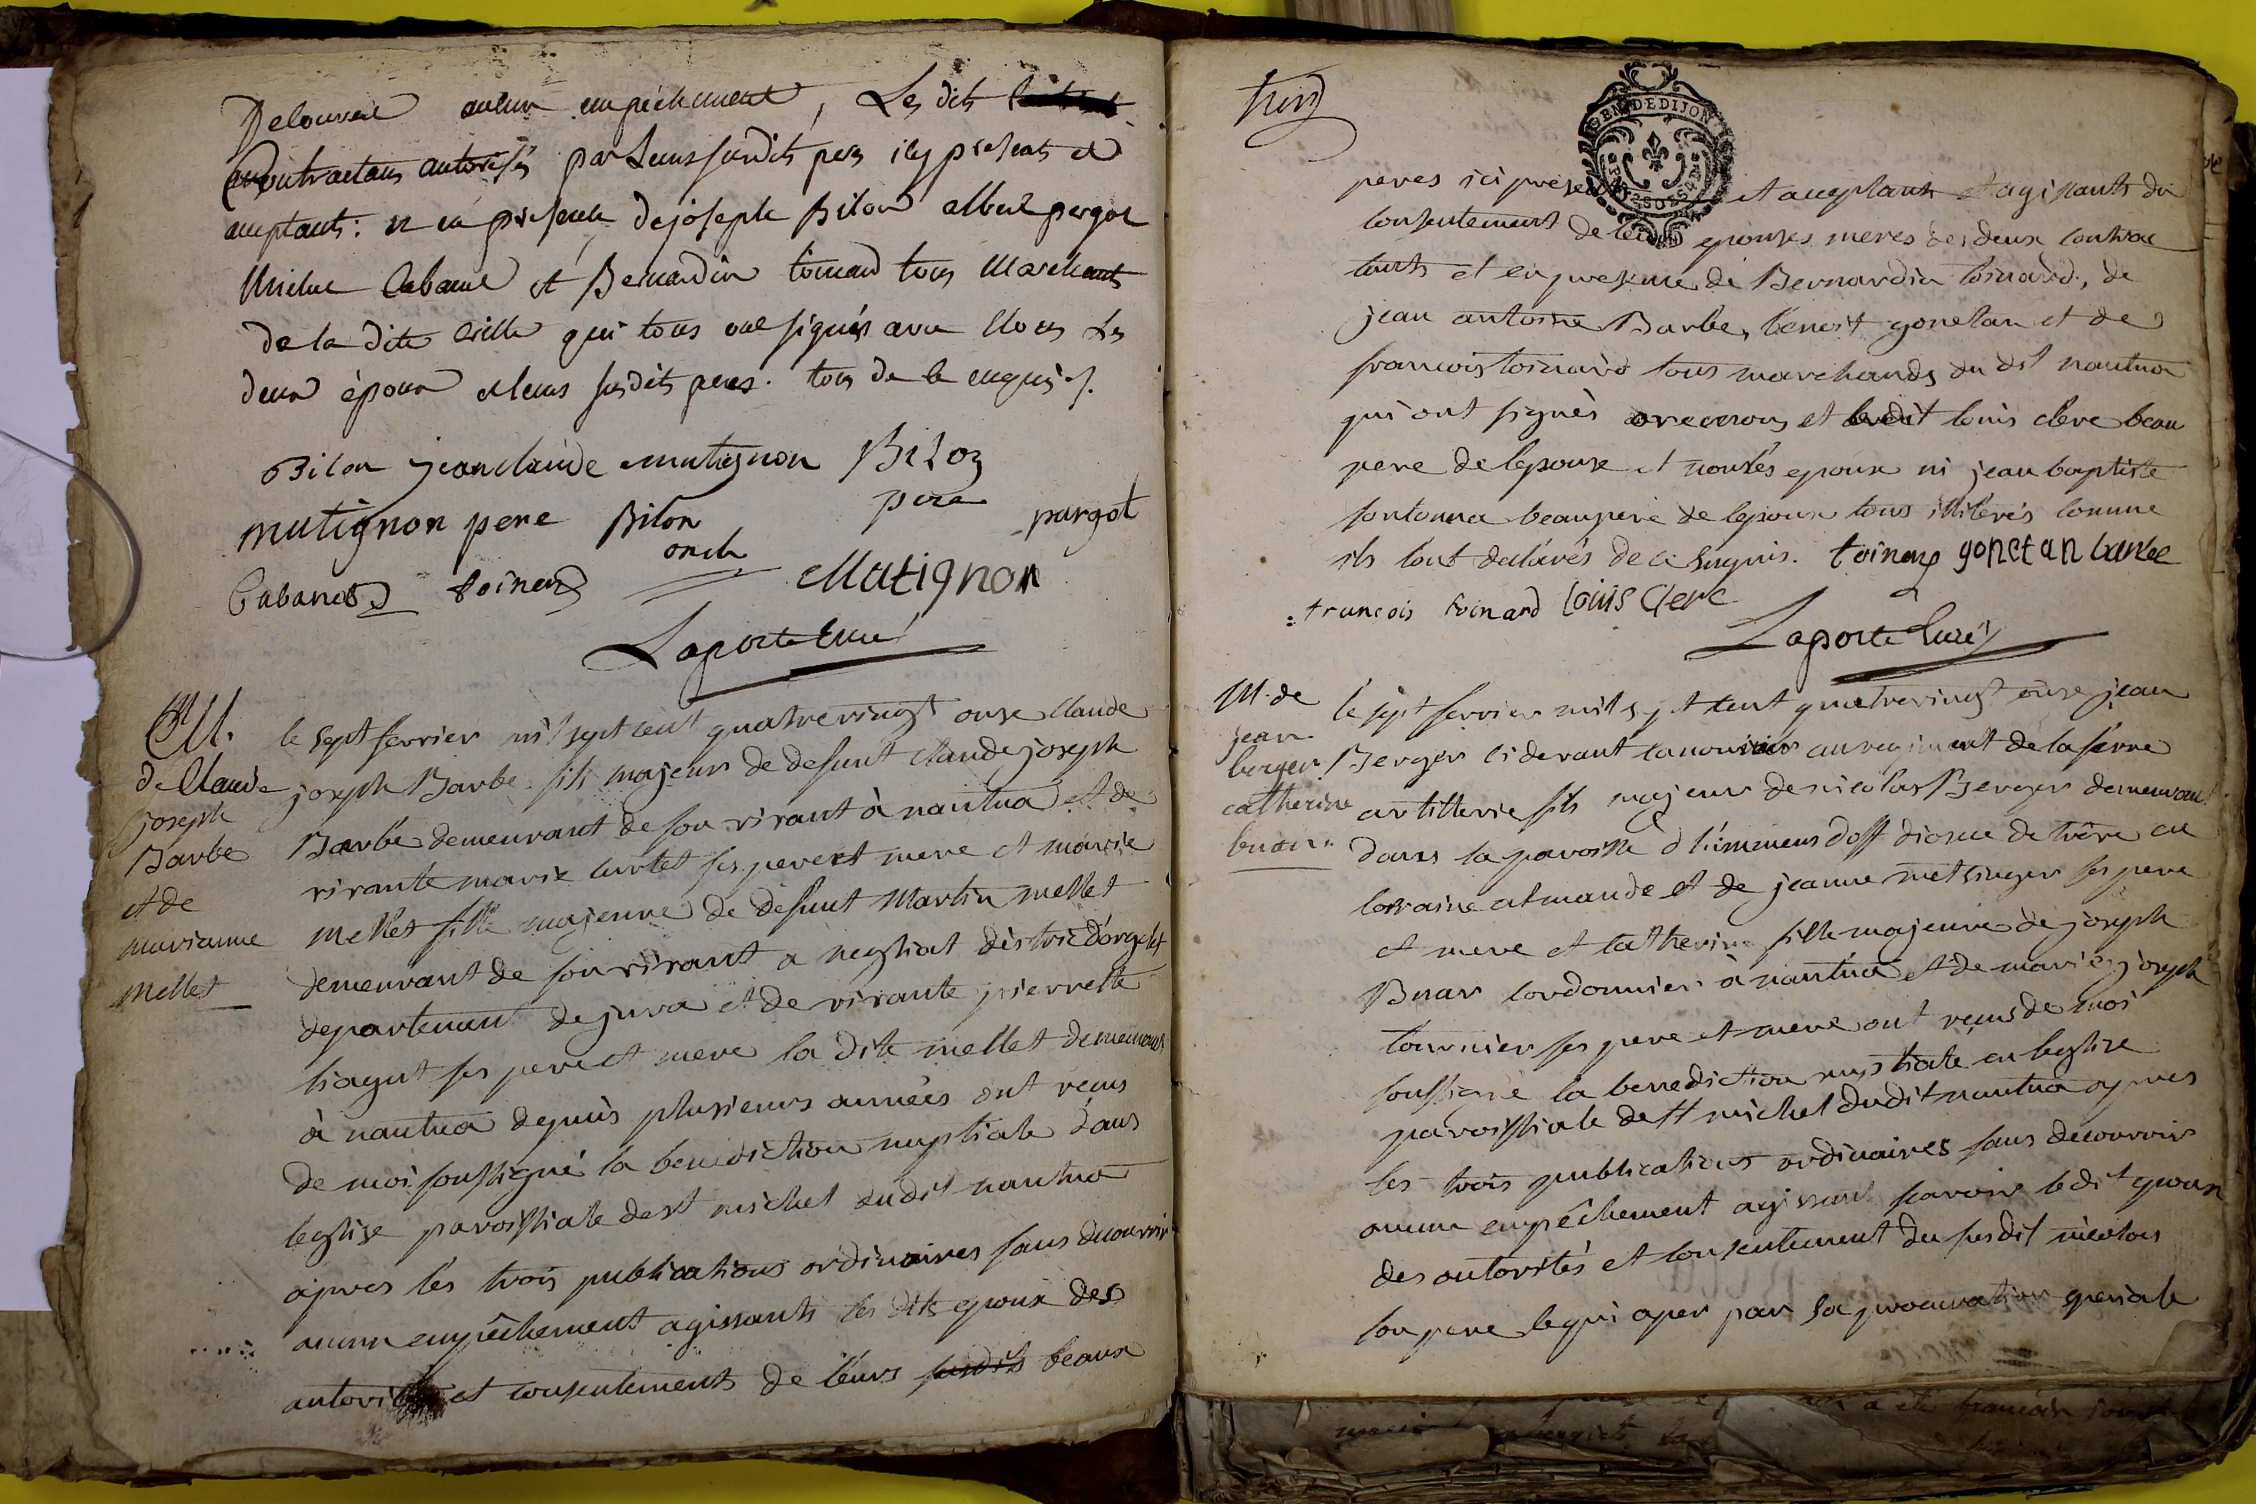 Decouvrir aucun empêchement, Les dits
Contractans autorisés par Leurs susdits peres icy présents et
acceptants: et en présence de joseph Bilon albert pergot
Michel Cabanet et Bernardin toinard tous Marchants
de la dite ville qui tous ont signés avec Nous Les
deux époux et leurs susdits peres. tous de ce enquis.
Bilon jean claude mutignon Bilon
pere
mutignon pere Bilon
oncle
pargot
Cabanet toinard Matignon
Laporte Curé
M.
de Claude
joseph
Barbe
et de
marianne
Mellet
le sept fevrier mil sept cent quatre vingt onze Claude
joseph Barbe fils majeur de defunt Claude joseph
Barbe demeurant de son vivant à nantua et de
vivante marie curtet ses pere et mere et marie
Mellet fille majeure de defunt Martin mellet
demeurant de son vivant a neglia district d'orgelet
departement de jura et de vivante pierrette
liagut ses pere et mere la dite mellet demeurant
à nantua depuis plusieurs années ont reçus
de moi soussigné la benediction nuptiale dans
leglise paroissiale de st michel dudit nantua
apres les trois publications ordinaires sans decouvrir
aucun empêchement agissants les dits epoux des
autorités et consentements de leurs susdits beaux
trois
GEN. DE DIJON
peres ici présents et acceptants et agissants du
consentement de leurs epouses meres des deux contrac
tants et en presence de Bernardin toinard, de
jean antoine Barbe, benoit gonetan et de
francois toinard tous marchands du dit nantua
qui ont signés avec nous et ledit louis clerc beau
pere de lepouse et non les epoux ni jean baptiste
fontanna beaupere de lepoux tous illiterés comme
ils l'ont declarés de ce enquis. toinard gonetan barbe
francois toinard Louis Clerc
Laporte Curé
M. de
jean
berger
catherine
buar
le sept fevrier mil sept cent quatre vingt onze jean
Berger ci devant canonnier au regiment de la fere
artillerie fils majeur de nicolas Berger demeurant
dans la paroisse d diocese de treve en
lorraine almande et de jeanne metsinger ses pere
et mere et catherine fille majeure de joseph
Buar cordonnier à nantua et de marie joseph
tournier ses pere et mere ont reçus de moi
soussigné la benediction nuptiale en leglise
paroissiale de st michel dudit nantua apres
les trois publications ordinaires sans decouvrir
aucun empêchement agissant savoir ledit epoux
des autorités et consentement du susdit nicolas
son pere le qui aper par sa procuration speciale